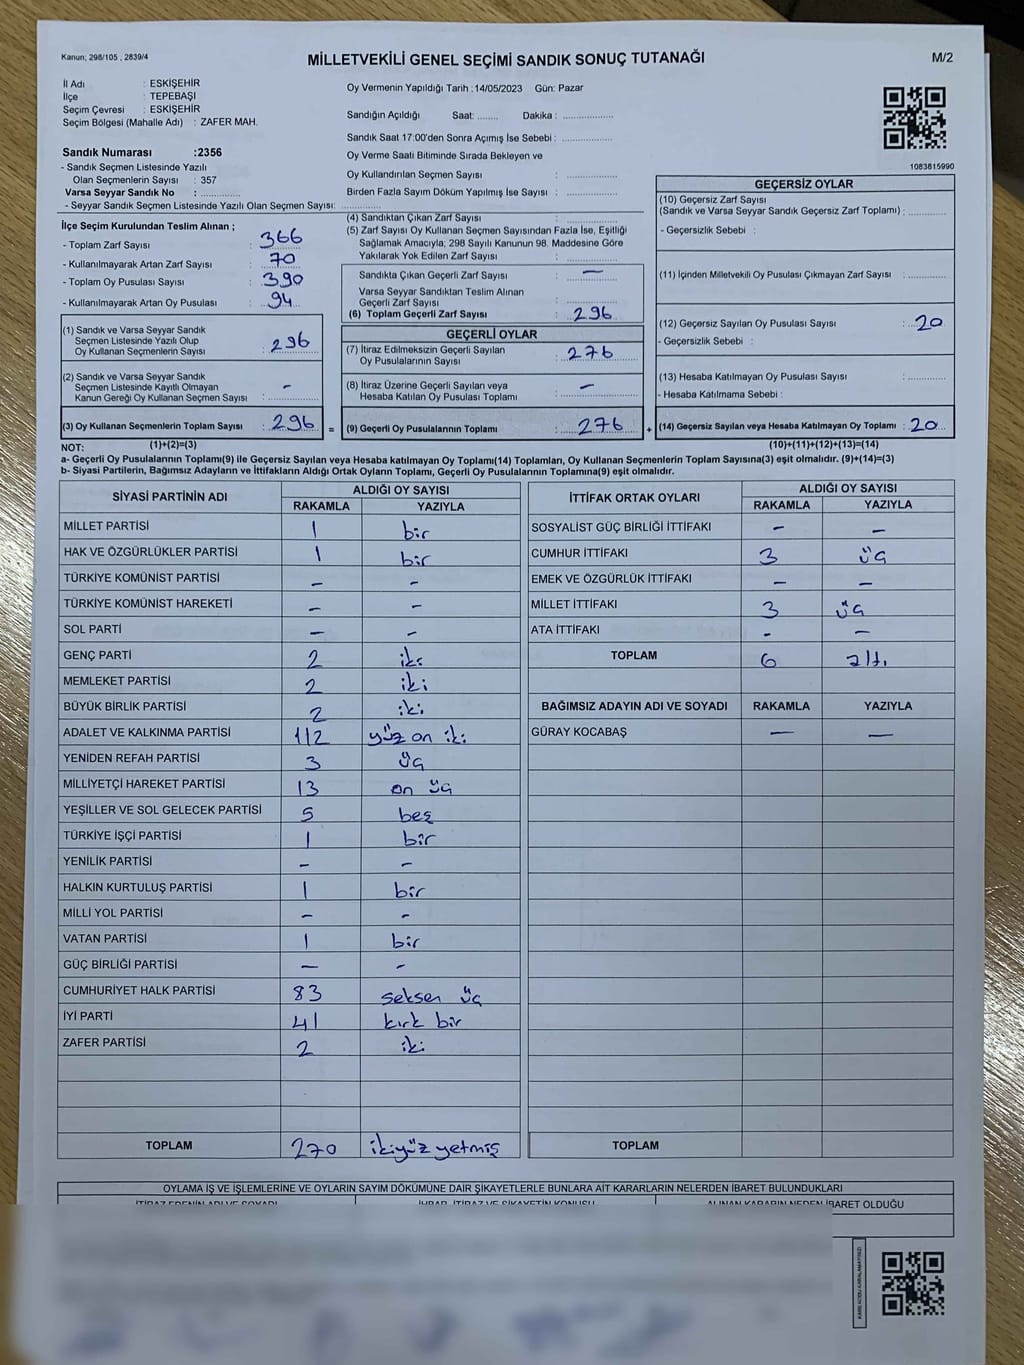 Kanun; 298/105 , 2839/4
MİLLETVEKİLİ GENEL SEÇİMİ SANDIK SONUÇ TUTANAĞI
M/2
İl Adı : ESKİŞEHİR
İlçe : TEPEBAŞI
Seçim Çevresi : ESKİŞEHİR
Seçim Bölgesi (Mahalle Adı) : ZAFER MAH.
Sandık Numarası :2356
- Sandık Seçmen Listesinde Yazılı
Olan Seçmenlerin Sayısı : 357
Varsa Seyyar Sandık No : ............
- Seyyar Sandık Seçmen Listesinde Yazılı Olan Seçmen Sayısı: ............
Oy Vermenin Yapıldığı Tarih :14/05/2023 Gün: Pazar
Sandığın Açıldığı Saat: ........ Dakika : ................
Sandık Saat 17:00'den Sonra Açımış İse Sebebi : ................
Oy Verme Saati Bitiminde Sırada Bekleyen ve
Oy Kullandırılan Seçmen Sayısı : ................
Birden Fazla Sayım Döküm Yapılmış İse Sayısı : ................
1083815990
İlçe Seçim Kurulundan Teslim Alınan ;
- Toplam Zarf Sayısı : 366
- Kullanılmayarak Artan Zarf Sayısı : 70
- Toplam Oy Pusulası Sayısı : 390
- Kullanılmayarak Artan Oy Pusulası : 94
(1) Sandık ve Varsa Seyyar Sandık
Seçmen Listesinde Yazılı Olup
Oy Kullanan Seçmenlerin Sayısı : 296
(2) Sandık ve Varsa Seyyar Sandık
Seçmen Listesinde Kayıtlı Olmayan
Kanun Gereği Oy Kullanan Seçmen Sayısı : -
(3) Oy Kullanan Seçmenlerin Toplam Sayısı : 296
(4) Sandıktan Çıkan Zarf Sayısı : ................
(5) Zarf Sayısı Oy Kullanan Seçmen Sayısından Fazla İse, Eşitliği
Sağlamak Amacıyla; 298 Sayılı Kanunun 98. Maddesine Göre
Yakılarak Yok Edilen Zarf Sayısı : ................
Sandıkta Çıkan Geçerli Zarf Sayısı : —
Varsa Seyyar Sandıktan Teslim Alınan
Geçerli Zarf Sayısı : ................
(6) Toplam Geçerli Zarf Sayısı : 296
GEÇERLİ OYLAR
(7) İtiraz Edilmeksizin Geçerli Sayılan
Oy Pusulalarının Sayısı : 276
(8) İtiraz Üzerine Geçerli Sayılan veya
Hesaba Katılan Oy Pusulası Toplamı : —
= (9) Geçerli Oy Pusulalarının Toplamı : 276
GEÇERSİZ OYLAR
(10) Geçersiz Zarf Sayısı
(Sandık ve Varsa Seyyar Sandık Geçersiz Zarf Toplamı) : ............
- Geçersizlik Sebebi :
(11) İçinden Milletvekili Oy Pusulası Çıkmayan Zarf Sayısı : ............
(12) Geçersiz Sayılan Oy Pusulası Sayısı : 20
- Geçersizlik Sebebi :
(13) Hesaba Katılmayan Oy Pusulası Sayısı : ............
- Hesaba Katılmama Sebebi :
+ (14) Geçersiz Sayılan veya Hesaba Katılmayan Oy Toplamı : 20
NOT: (1)+(2)=(3) (10)+(11)+(12)+(13)=(14)
a- Geçerli Oy Pusulalarının Toplamı(9) ile Geçersiz Sayılan veya Hesaba katılmayan Oy Toplamı(14) Toplamları, Oy Kullanan Seçmenlerin Toplam Sayısına(3) eşit olmalıdır. (9)+(14)=(3)
b- Siyasi Partilerin, Bağımsız Adayların ve İttifakların Aldığı Ortak Oyların Toplamı, Geçerli Oy Pusulalarının Toplamına(9) eşit olmalıdır.
SİYASİ PARTİNİN ADI ALDIĞI OY SAYISI
RAKAMLA YAZIYLA
MİLLET PARTİSİ 1 bir
HAK VE ÖZGÜRLÜKLER PARTİSİ 1 bir
TÜRKİYE KOMÜNİST PARTİSİ — -
TÜRKİYE KOMÜNİST HAREKETİ — -
SOL PARTİ — -
GENÇ PARTİ 2 iki
MEMLEKET PARTİSİ 2 iki
BÜYÜK BİRLİK PARTİSİ 2 iki
ADALET VE KALKINMA PARTİSİ 112 yüz on iki
YENİDEN REFAH PARTİSİ 3 üç
MİLLİYETÇİ HAREKET PARTİSİ 13 on üç
YEŞİLLER VE SOL GELECEK PARTİSİ 5 beş
TÜRKİYE İŞÇİ PARTİSİ 1 bir
YENİLİK PARTİSİ - -
HALKIN KURTULUŞ PARTİSİ 1 bir
MİLLİ YOL PARTİSİ - -
VATAN PARTİSİ 1 bir
GÜÇ BİRLİĞİ PARTİSİ — -
CUMHURİYET HALK PARTİSİ 83 seksen üç
İYİ PARTİ 41 kırk bir
ZAFER PARTİSİ 2 iki
TOPLAM 270 ikiyüz yetmiş
İTTİFAK ORTAK OYLARI ALDIĞI OY SAYISI
RAKAMLA YAZIYLA
SOSYALİST GÜÇ BİRLİĞİ İTTİFAKI - -
CUMHUR İTTİFAKI 3 üç
EMEK VE ÖZGÜRLÜK İTTİFAKI - -
MİLLET İTTİFAKI 3 üç
ATA İTTİFAKI - -
TOPLAM 6 altı
BAĞIMSIZ ADAYIN ADI VE SOYADI RAKAMLA YAZIYLA
GÜRAY KOCABAŞ — —
TOPLAM
OYLAMA İŞ VE İŞLEMLERİNE VE OYLARIN SAYIM DÖKÜMÜNE DAİR ŞİKAYETLERLE BUNLARA AİT KARARLARIN NELERDEN İBARET BULUNDUKLARI
İTİRAZ EDENİN ADI VE SOYADI İHBAR, İTİRAZ VE ŞİKAYETİN KONUSU ALINAN KARARIN NEDEN İBARET OLDUĞU